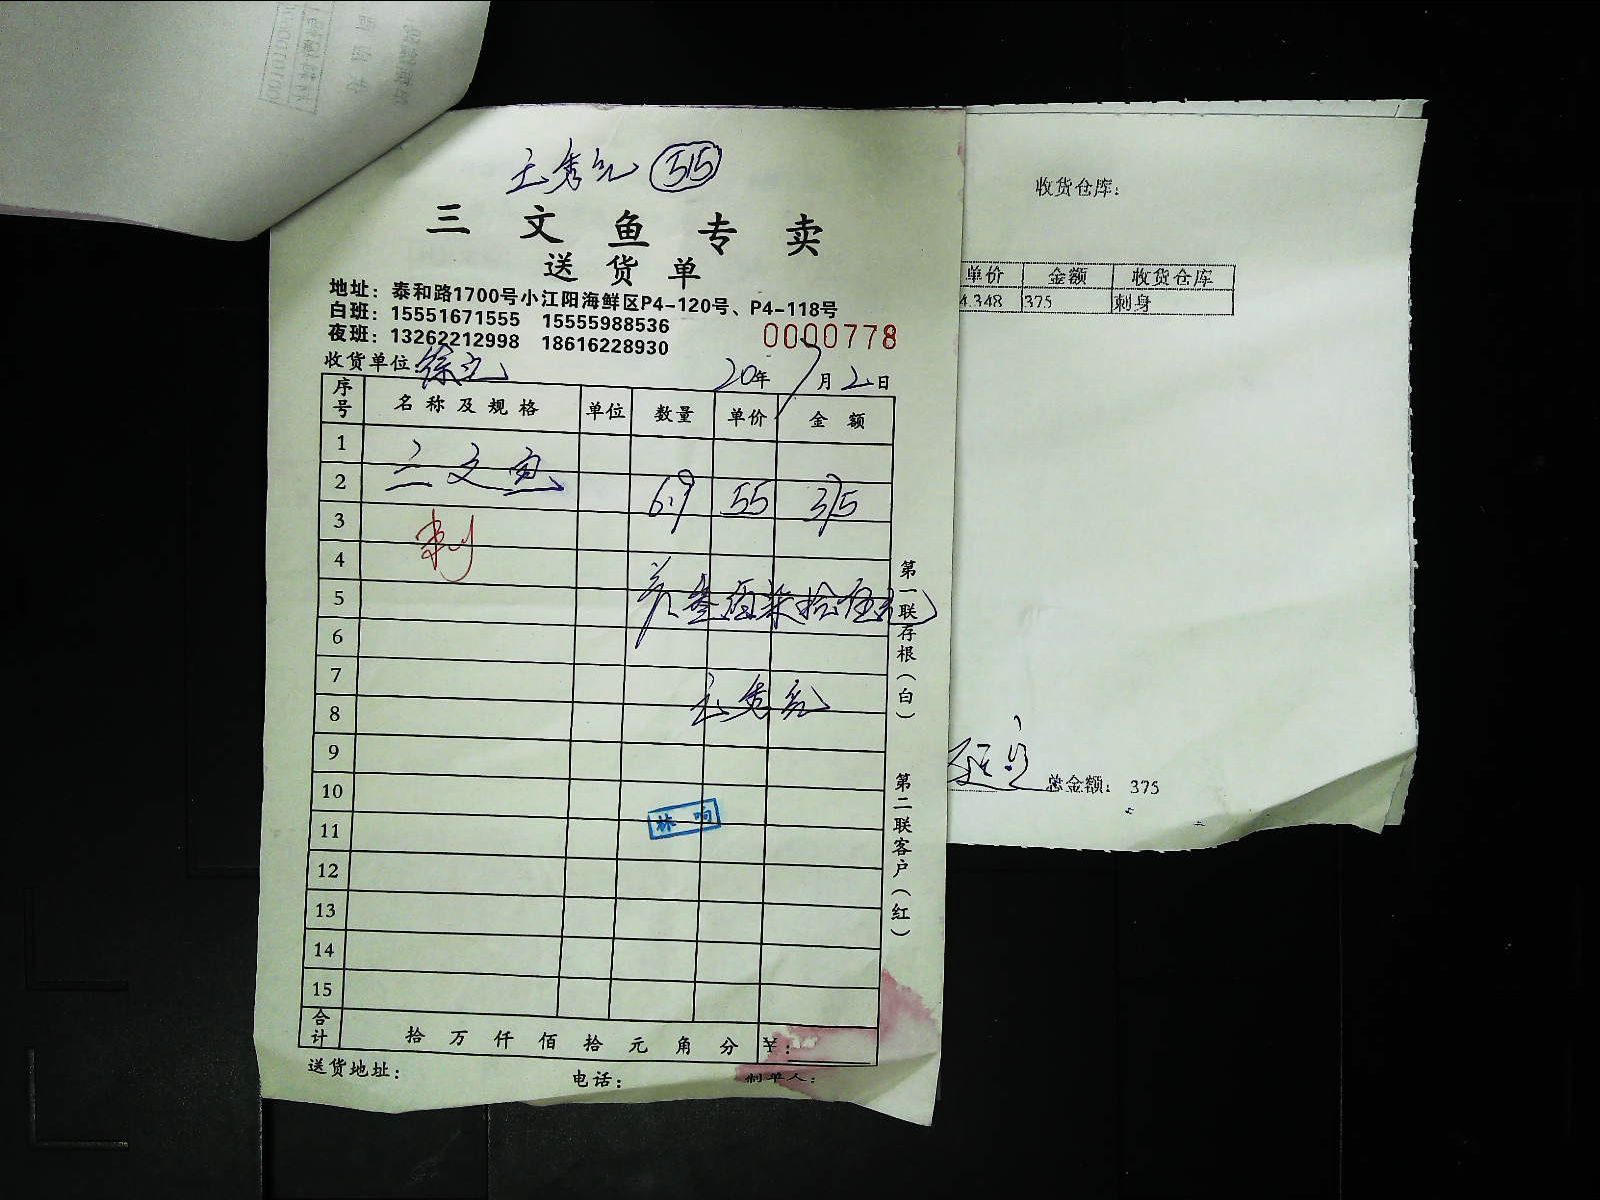 王秀元 515
三文鱼专卖
送货单
地址：泰和路1700号小江阳海鲜区P4-120号、P4-118号
白班：15551671555 15555988536
夜班：13262212998 18616228930
0000778
收货单位: 徐 20年7月2日
序号 名称及规格 单位 数量 单价 金额
1
2 三文鱼 6.9 55 375
3 刺
4
5 叁佰柒拾伍元
6
7
8 王秀元
9
10
11 林响
12
13
14
15
合计 拾万仟佰拾元角分 ¥：
送货地址： 电话： 制单人：
第一联存根（白）
第二联客户（红）
收货仓库：
单价 金额 收货仓库
4.348 375 刺身
总金额： 375